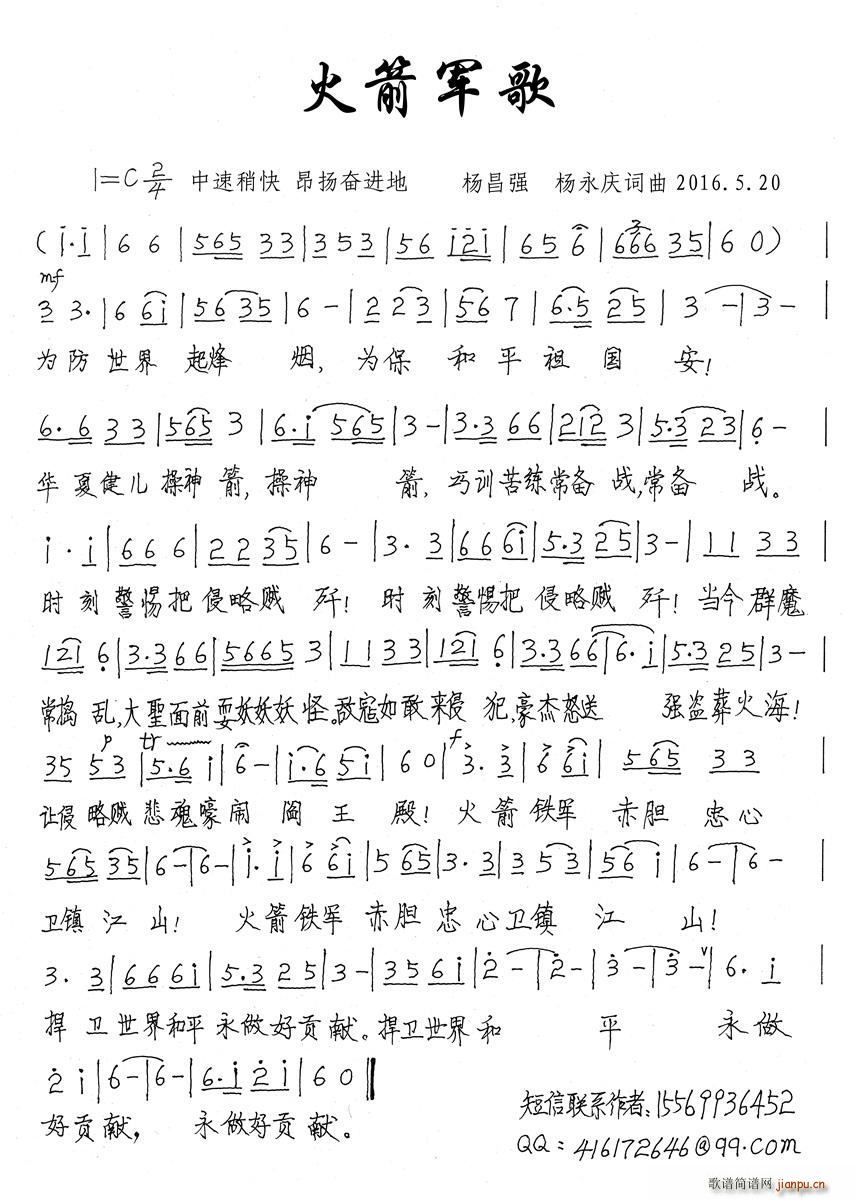 火箭军歌
1=C 2/4 中速稍快 昂扬奋进地 杨昌强 杨永庆词曲 2016.5.20
(i·i|6 6|565 33|353|56 i2i|65 6|666 35|60)|
mf
3 3·|6 6i|56 35|6-|2 23|56 7|6·5 25|3 -|3-|
为防世界 起烽 烟，为保 和平祖国 安！
6·6 33|565 3|6·i 565|3-|3·3 66|212 3|5·3 23|6-|
华夏健儿操神箭，操神 箭，巧训苦练常备战，常备 战。
i·i|66 6|22 35|6-|3·3|66 6i|5·3 25|3-|11 33|
时刻警惕把侵略贼 歼！时刻警惕把侵略贼 歼！当今群魔
121 6|3·3 66|5665 3|11 33|121 6|3·3 66|6·i|5·3 25|3-|
常捣 乱，大圣面前耍妖妖妖怪。敌寇如敢来侵 犯，豪杰怒送 强盗葬火海！
p tr f
35 53|5·6 i|6-|i·6 5i|60|3·3|6 6i|565 33|
让侵略贼悲魂嚎闹 阎王 殿！火箭铁军 赤胆 忠心
565 35|6-|6-|i·i|6 6i|5 65|3·3|3 53|56 i|6-|6-|
卫镇江山！ 火箭铁军 赤胆忠心卫镇 江 山！
3·3|66 6i|5·3 25|3-|35 6i|2-|2-|3-|3-|6·i|
捍卫世界和平永做好贡献。捍卫世界和 平 永做
2 i|6-|6-|6·i 2i|60‖
好贡献， 永做好贡献。
短信联系作者：15569936452
QQ：416172646@99.com
歌谱简谱网
jianpu.cn